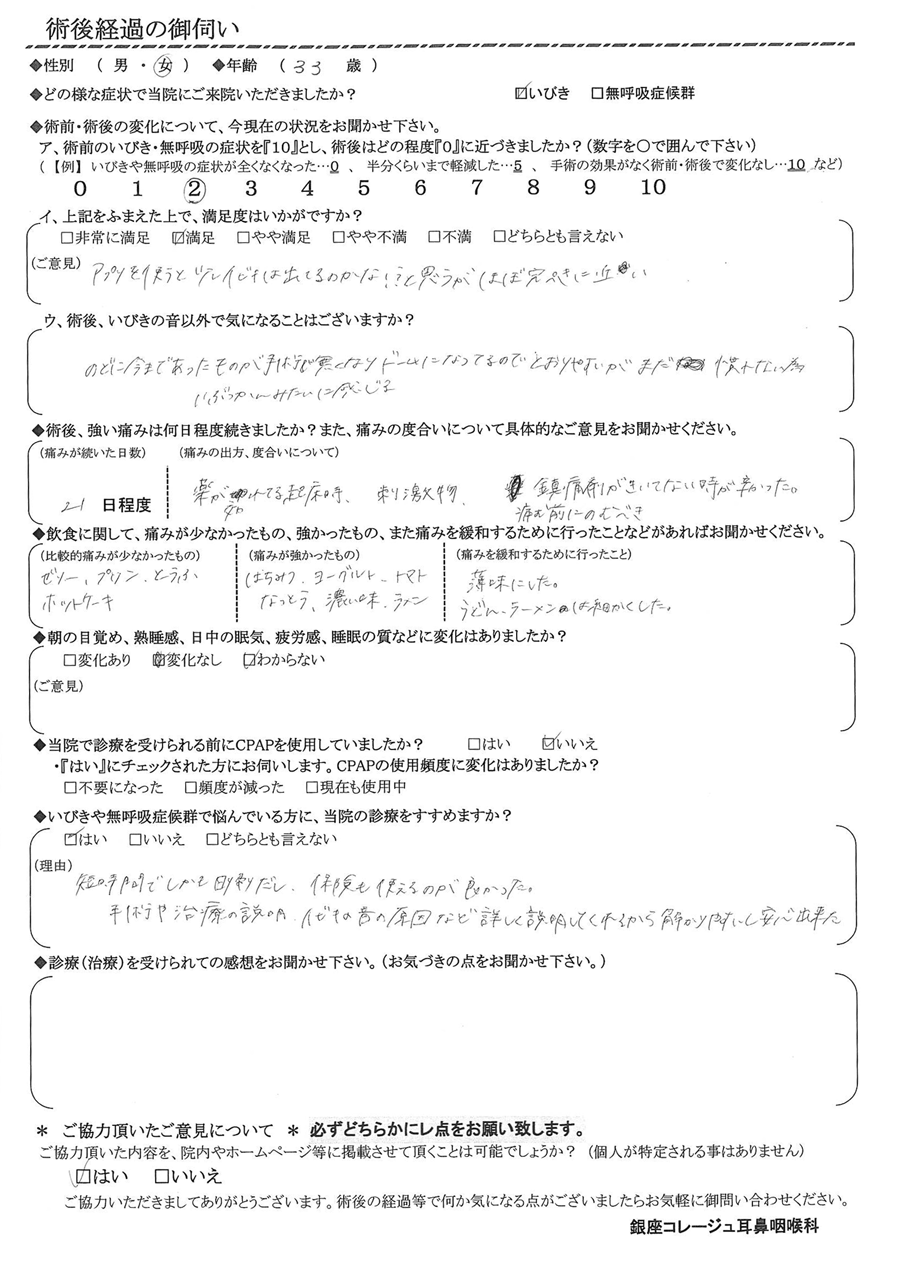 術後経過の御伺い
◆性別 （ 男 ・ 女 ） ◆年齢 （ 33 歳 ）
◆どの様な症状で当院にご来院いただきましたか？ ☑いびき □無呼吸症候群
◆術前・術後の変化について、今現在の状況をお聞かせ下さい。
ア、術前のいびき・無呼吸の症状を『10』とし、術後はどの程度『0』に近づきましたか？（数字を〇で囲んで下さい）
（ 【例】 いびきや無呼吸の症状が全くなくなった…0 、 半分くらいまで軽減した…5 、 手術の効果がなく術前・術後で変化なし…10 など）
0 1 2 3 4 5 6 7 8 9 10
イ、上記をふまえた上で、満足度はいかがですか？
□非常に満足 ☑満足 □やや満足 □やや不満 □不満 □どちらとも言えない
（ご意見） アプリを使うと少しイビキは出てるのかな！？と思うが ほぼ完ぺきに近い
ウ、術後、いびきの音以外で気になることはございますか？
のどに今まであったものが手術で無くなりドームになってるのでとおりやすいが まだ 慣れない為
いぶつかんみたいに感じる
◆術後、強い痛みは何日程度続きましたか？また、痛みの度合いについて具体的なご意見をお聞かせください。
（痛みが続いた日数） （痛みの出方、度合いについて）
21 日程度 薬が切れてる起床時、 刺激物、 鎮痛剤がきいてない時が辛かった。
痛む前にのむべき
◆飲食に関して、痛みが少なかったもの、強かったもの、また痛みを緩和するために行ったことなどがあればお聞かせください。
（比較的痛みが少なかったもの） （痛みが強かったもの） （痛みを緩和するために行ったこと）
ゼリー、プリン、とうふ、 はちみつ、ヨーグルト、トマト 薄味にした。
ホットケーキ なっとう、濃い味、ラーメン うどん、ラーメンは細かくした。
◆朝の目覚め、熟睡感、日中の眠気、疲労感、睡眠の質などに変化はありましたか？
□変化あり ☑変化なし ☑わからない
（ご意見）
◆当院で診療を受けられる前にCPAPを使用していましたか？ □はい ☑いいえ
・『はい』にチェックされた方にお伺いします。CPAPの使用頻度に変化はありましたか？
□不要になった □頻度が減った □現在も使用中
◆いびきや無呼吸症候群で悩んでいる方に、当院の診療をすすめますか？
☑はい □いいえ □どちらとも言えない
（理由） 短時間でしかも日帰りだし、保険も使えるのが良かった。
手術や治療の説明、イビキの音の原因など詳しく説明してくれるから解かりやすいし安心出来た
◆診療（治療）を受けられての感想をお聞かせ下さい。（お気づきの点をお聞かせ下さい。）
＊ ご協力頂いたご意見について ＊ 必ずどちらかにレ点をお願い致します。
ご協力頂いた内容を、院内やホームページ等に掲載させて頂くことは可能でしょうか？ （個人が特定される事はありません）
☑はい □いいえ
ご協力いただきましてありがとうございます。術後の経過等で何か気になる点がございましたらお気軽に御問い合わせください。
銀座コレージュ耳鼻咽喉科